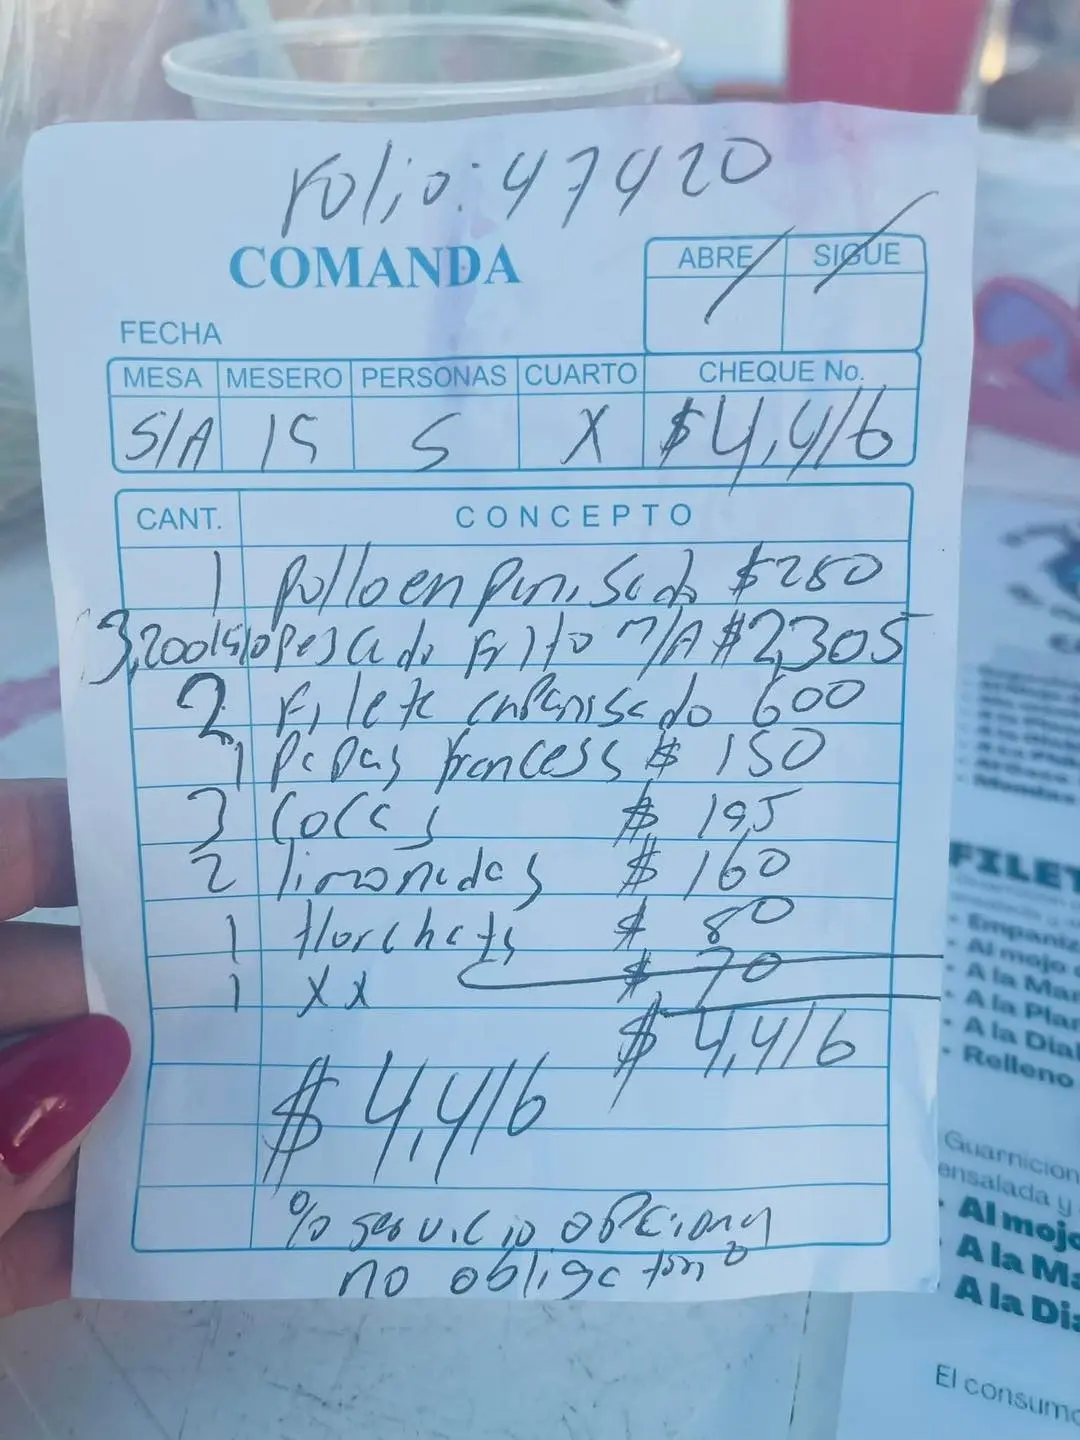 Folio: 47420
COMANDA
ABRE SIGUE
FECHA
MESA MESERO PERSONAS CUARTO CHEQUE No.
S/A 15 5 X $4,416
CANT. CONCEPTO
1 pollo enpanisado $250
pescado frito M/A $2,305
2 Filete enpanisado 600
1 papas francess $ 150
3 Cocas $ 195
2 limonadas $ 160
1 Horchata $ 80
1 XX $ 70
$ 4,416
$ 4,416
% servicio opcional
no obligatorio
FILET
Empaniz
Al mojo
A la Man
A la Plan
A la Dial
Relleno
Guarnicion
ensalada y
Al mojo
A la Ma
A la Dia
El consumo